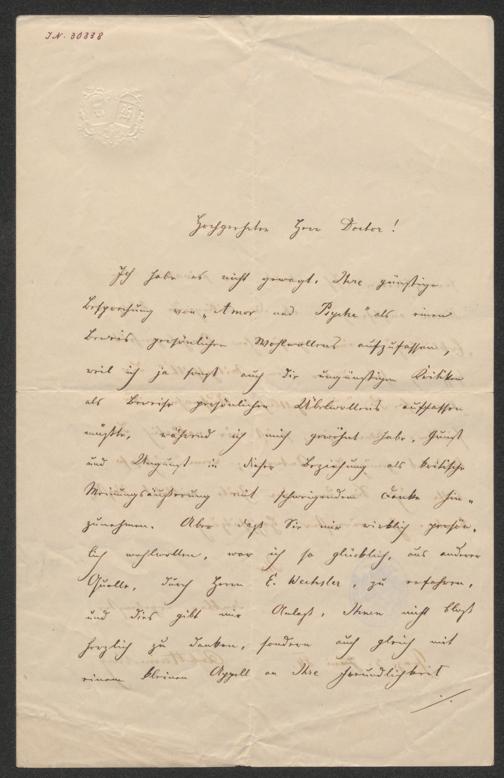 I.N. 30338
Hochgeehrter Herr Doctor!
Ich habe es nicht gewagt, Ihre günstige
Besprechung von „Amor und Psyche“ als einen
Beweis persönlichen Wohlwollens aufzufassen,
weil ich ja sonst auch die ungünstigen Kritiken
als Beweise persönlichen Übelwollens auffassen
müßte, während ich mich gewöhnt habe, Gunst
und Ungunst in dieser Beziehung als kritische
Meinungsäußerung mit schweigendem Danke hin-
zunehmen. Aber daß Sie mir wirklich persön-
lich wohlwollen, war ich so glücklich, aus anderer
Quelle, durch Herrn E. Wechsler zu erfahren,
und dies gibt mir Anlaß, Ihnen nicht bloß
herzlich zu danken, sondern auch gleich mit
einem kleinen Appell an Ihre Freundlichkeit
./.